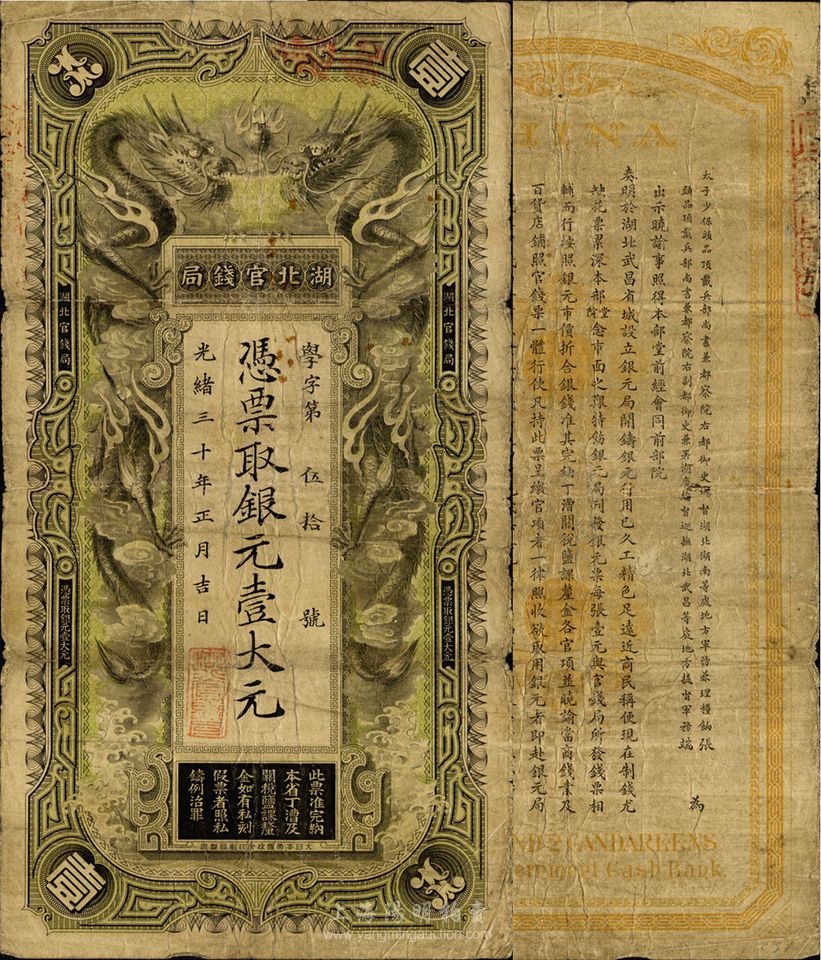 壹
湖北官錢局
學字第 伍拾 號
憑票取銀元壹大元
光緒三十年正月吉日
湖北官錢局
憑票取銀元壹大元
湖北官錢局
憑票取銀元壹大元
此票准完納
本省丁漕及
關稅鹽課釐
金如有私刻
假票者照私
鑄例治罪
壹
CHINA
太子少保頭品頂戴兵部尚書兼都察院右都御史 督湖北湖南等處地方軍務兼理糧餉張
頭品頂戴兵部尚書兼都察院右副都御史兼署湖廣總督巡撫湖北武昌等處地方提督軍務端
為
出示曉諭事照得本部堂前經會同前部院
奏明於湖北武昌省城設立銀元局開鑄銀元行用已久工精色足遠近商民稱便現在制錢尤
缺花票累深本部堂院念市面之艱特飭銀元局刊發銀元票每張壹元與官錢局所發錢票相
輔而行按照銀元市價折合銀錢准其完納丁漕關稅鹽課釐金各官項並曉諭當商錢業及
百貨店鋪照官錢票一體行使凡持此票呈繳官項者一律照收欲取用銀元者即赴銀元局
AND 2 CANDAREENS
Government Cash Bank.
上海陽明拍賣
www.yangmingauction.com